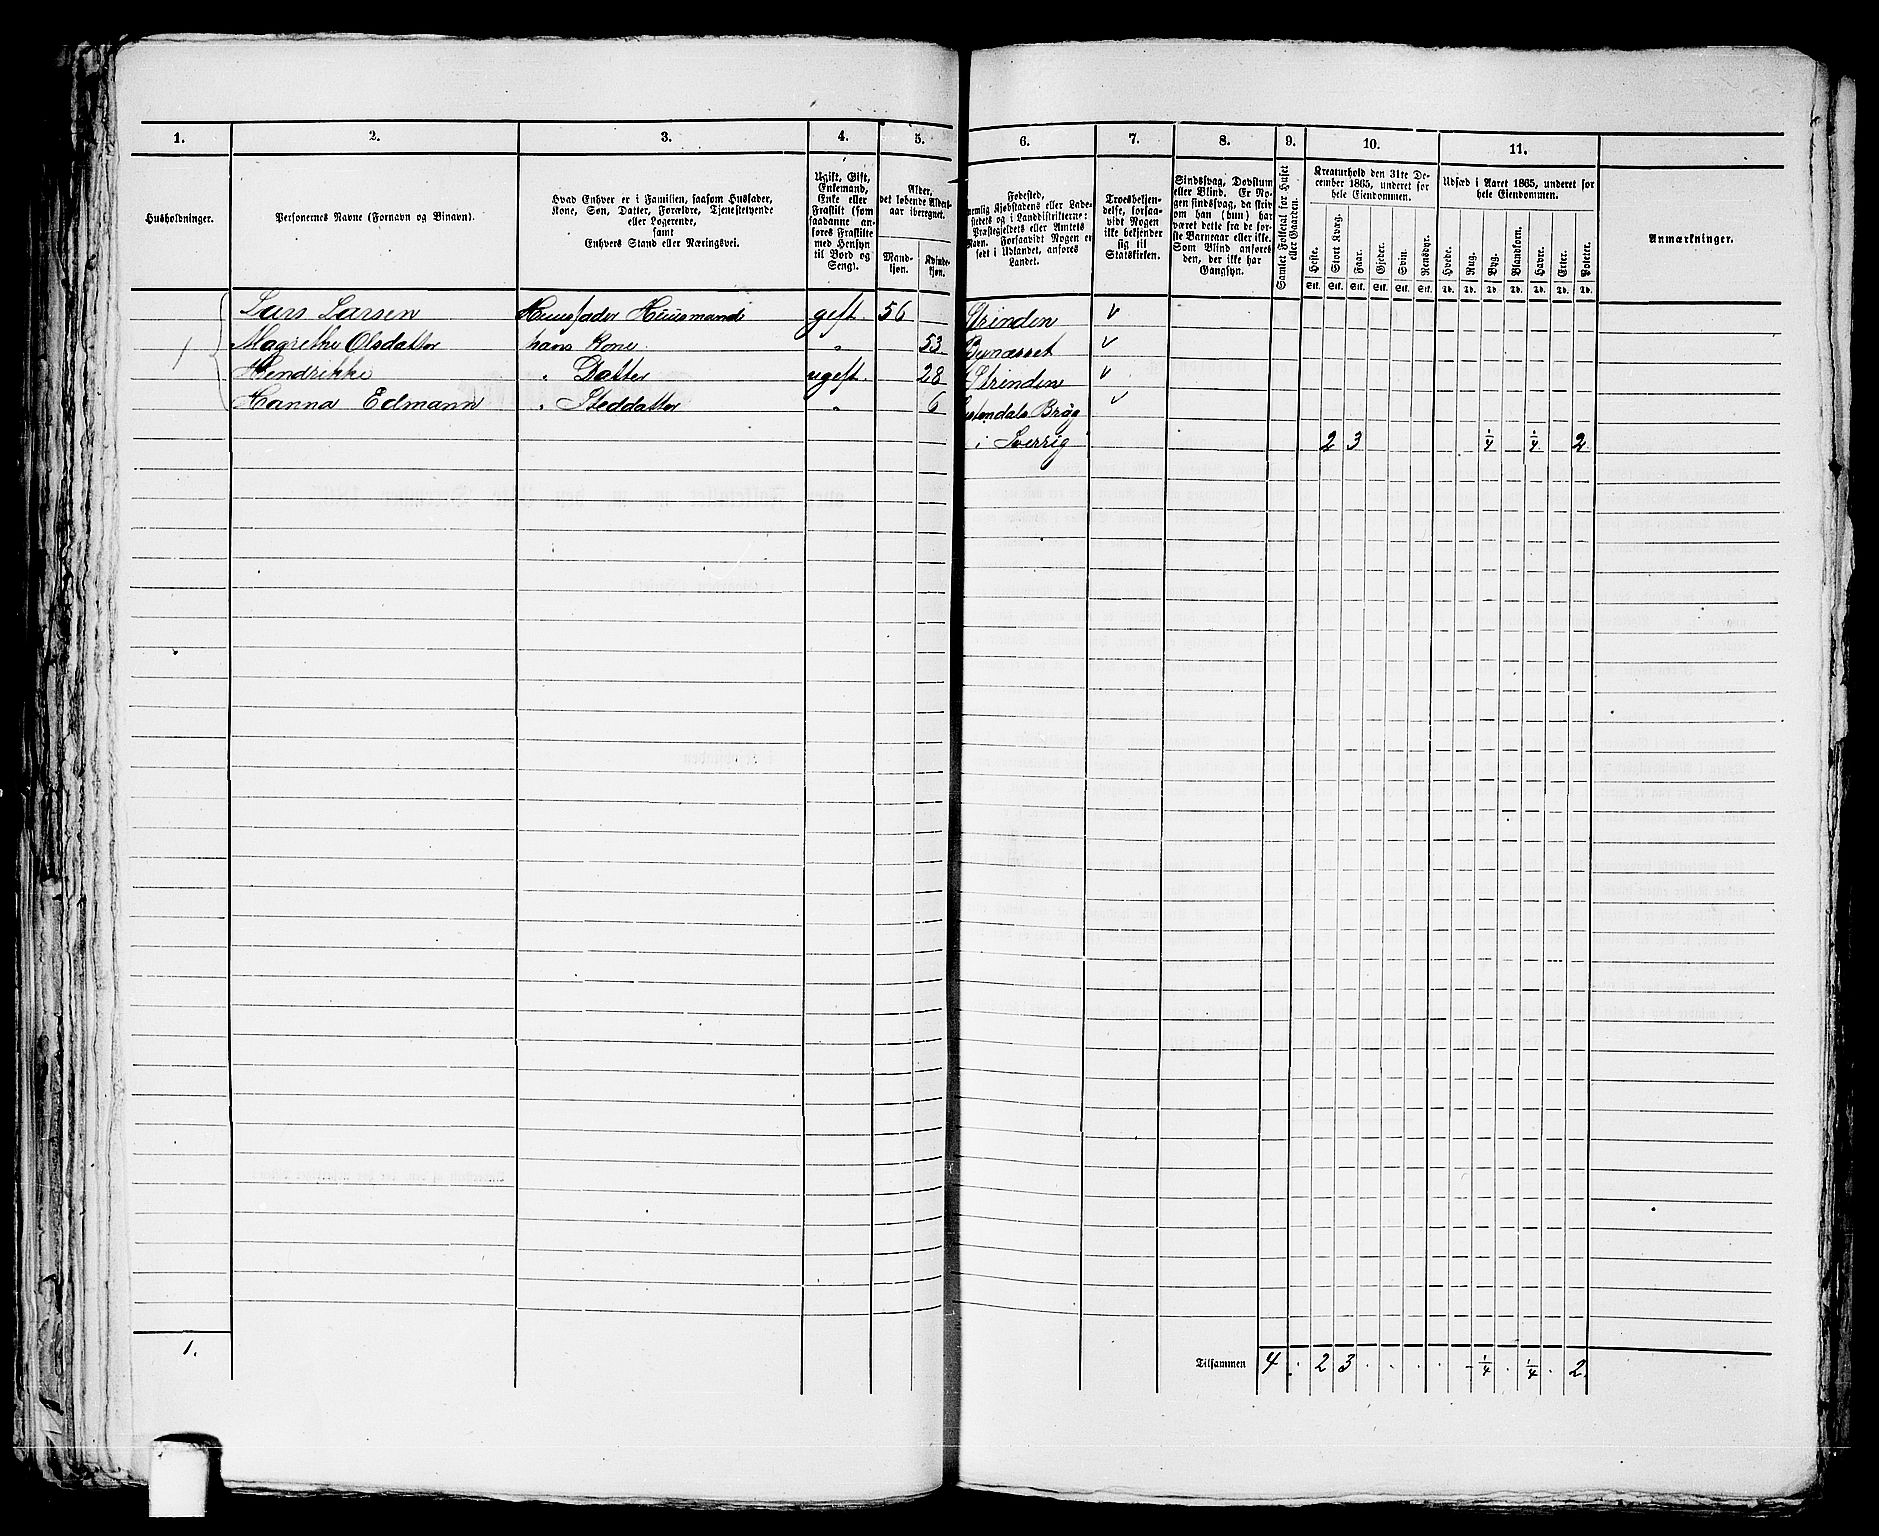 1. 2. 3. 4. 5. 6. 7. 8. 9. 10. 11.
Husholdninger.
Personernes Navne (Fornavn og Binavn).
Hvad Enhver er i Familien, saasom Husfader,
Kone, Søn, Datter, Forældre, Tjenestetyende
eller Logerende,
samt
Enhvers Stand eller Næringsvei.
Ugift, Gift,
Enkemand,
Enke eller
Fraskilt (som
saadanne an-
føres Fraskilte
med Hensyn
til Bord og
Seng).
Alder,
det løbende Alders-
aar iberegnet.
Mand-
kjøn.
Kvinde-
kjøn.
Fødested,
nemlig Kjøbstadens eller Lade-
stedets og i Landdistrikterne:
Præstegjeldets eller Amtets
Navn. Forsaavidt Nogen er
født i Udlandet, anføres
Landet.
Troesbekjen-
delse, forsaa-
vidt Nogen
ikke bekjender
sig til
Statskirken.
Sindssvag, Døvstum
eller Blind. Er No-
gen sindssvag, da skriv
om han (hun) har
været dette fra de før-
ste Barneaar eller ikke.
Som Blind anføres
den, der ikke har
Gangsyn.
Samlet Folketal for Huset
eller Gaarden.
Kreaturhold den 31te De-
cember 1865, underet for
hele Eiendommen.
Heste. Stort Kvæg. Faar. Gjeder. Svin. Rensdyr.
Stk. Stk. Stk. Stk. Stk. Stk.
Udsæd i Aaret 1865, underet for
hele Eiendommen.
Hvede. Rug. Byg. Blandkorn. Havre. Erter. Poteter.
Td. Td. Td. Td. Td. Td. Td.
Anmærkninger.
Lars Larsen Huusfader Huusmand gift. 56 Strinden v
1 Magrethe Olsdatter hans Kone " 53. Bynæsset v
Hendrikke " Datter ugift. 28 Strinden v
Hanna Edmann " Steddatter " 6 v
i Sverrig 2 3 1/4 1/4 2
1.
Tilsammen 4 . 2 3 . . . . - 1/4 . 1/4 . 2.